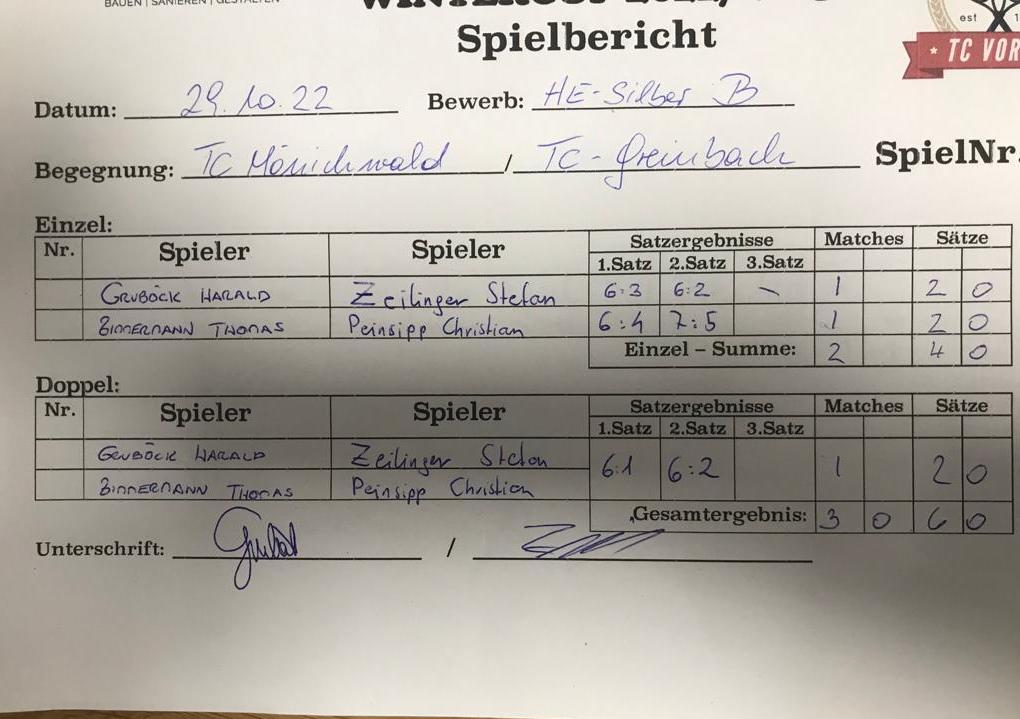 BAUEN | SANIEREN | GESTALTEN
Spielbericht
est 1
* TC VOR
Datum: 29.10.22 Bewerb: HE-Silber B
Begegnung: TC Mönichwald / TC-Greinbach SpielNr.
Einzel:
Nr. Spieler Spieler Satzergebnisse Matches Sätze
1.Satz 2.Satz 3.Satz
GRUBÖCK HARALD Zeilinger Stefan 6:3 6:2 – 1 2 0
BINNERMANN THOMAS Peinsipp Christian 6:4 7:5 1 2 0
Einzel – Summe: 2 4 0
Doppel:
Nr. Spieler Spieler Satzergebnisse Matches Sätze
1.Satz 2.Satz 3.Satz
GRUBÖCK HARALD Zeilinger Stefan 6:1 6:2 1 2 0
BINNERMANN THOMAS Peinsipp Christian
Gesamtergebnis: 3 0 6 0
Unterschrift: /